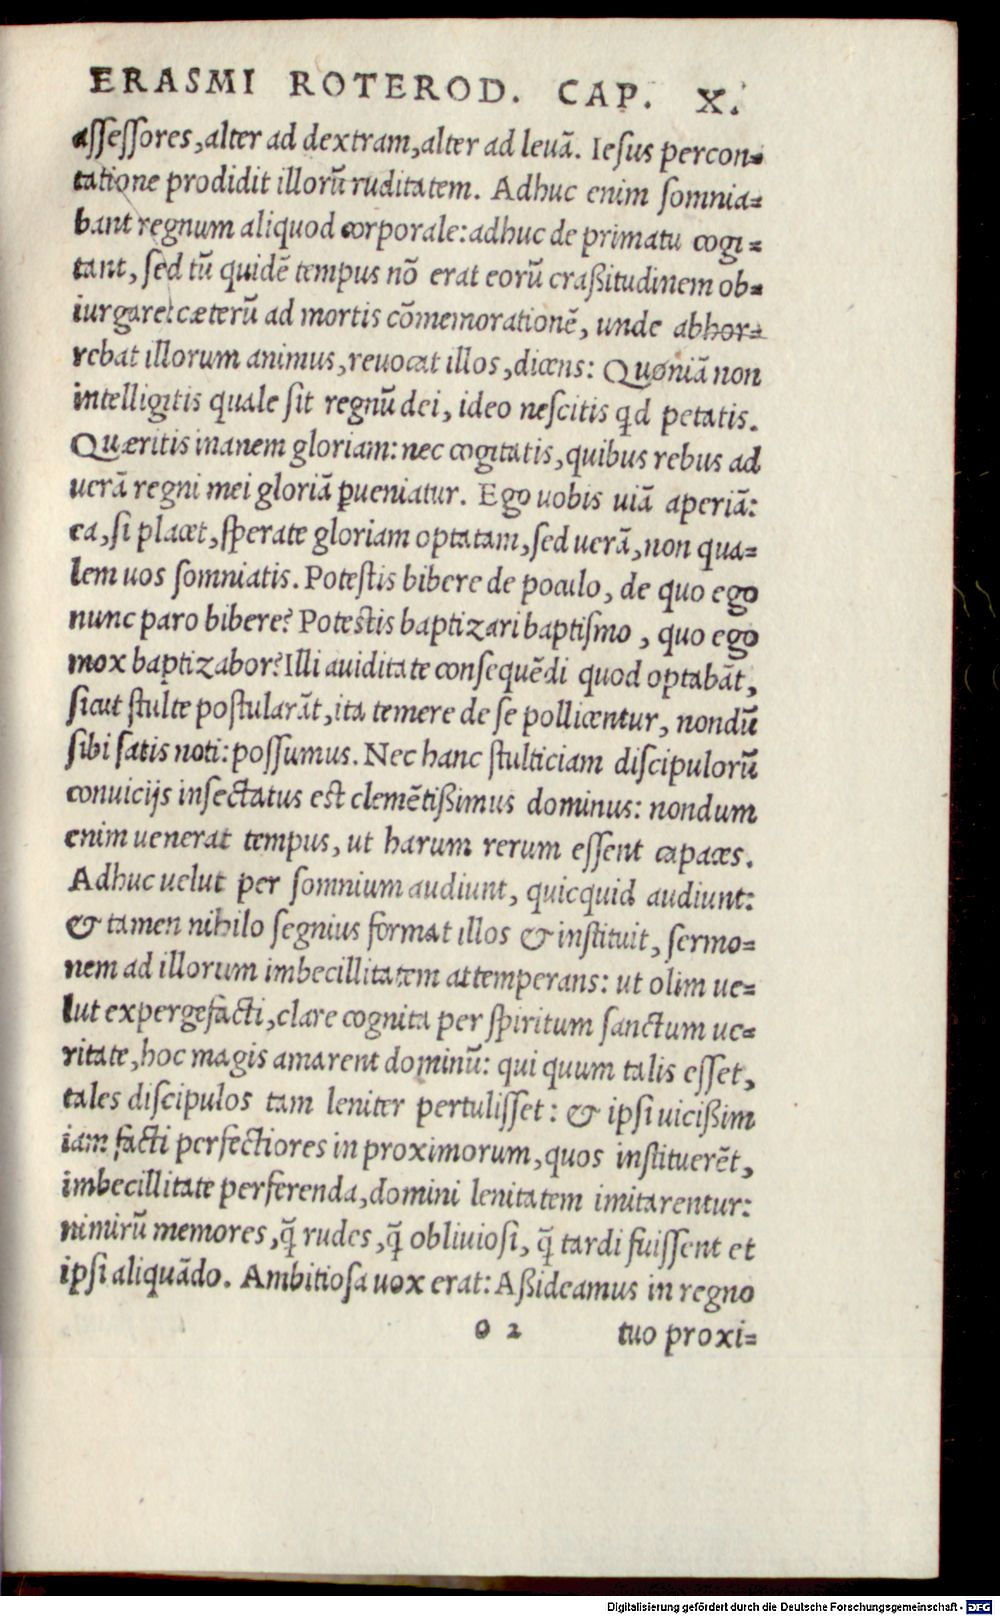 ERASMI ROTEROD. CAP. X.
assessores, alter ad dextram, alter ad leuã. Iesus percon⸗
tatione prodidit illorũ ruditatem. Adhuc enim somnia⸗
bant regnum aliquod corporale: adhuc de primatu cogi⸗
tant, sed tũ quidẽ tempus nõ erat eorũ craßitudinem ob⸗
iurgare: cæterũ ad mortis cõmemorationẽ, unde abhor⸗
rebat illorum animus, reuocat illos, dicens: Quoniã non
intelligitis quale sit regnũ dei, ideo nescitis qd petatis.
Quæritis inanem gloriam: nec cogitatis, quibus rebus ad
uerã regni mei gloriã ꝑueniatur. Ego uobis uiã aperiã:
ea, si placet, sperate gloriam optatam, sed uerã, non qua⸗
lem uos somniatis. Potestis bibere de poculo, de quo ego
nunc paro bibere? Potestis baptizari baptismo, quo ego
mox baptizabor? Illi auiditate consequẽdi quod optabãt,
sicut stulte postularãt, ita temere de se pollicentur, nondũ
sibi satis noti: possumus. Nec hanc stulticiam discipulorũ
conuicijs insectatus est clemẽtißimus dominus: nondum
enim uenerat tempus, ut harum rerum essent capaces.
Adhuc uelut per somnium audiunt, quicquid audiunt:
& tamen nihilo segnius format illos & instituit, sermo⸗
nem ad illorum imbecillitatem attemperans: ut olim ue⸗
lut expergefacti, clare cognita per spiritum sanctum ue⸗
ritate, hoc magis amarent dominũ: qui quum talis esset,
tales discipulos tam leniter pertulisset: & ipsi uicißim
iam facti perfectiores in proximorum, quos instituerẽt,
imbecillitate perferenda, domini lenitatem imitarentur:
nimirũ memores, q̃ rudes, q̃ obliuiosi, q̃ tardi fuissent et
ipsi aliquãdo. Ambitiosa uox erat: Aßideamus in regno
o 2 tuo proxi⸗
Digitalisierung gefördert durch die Deutsche Forschungsgemeinschaft - DFG